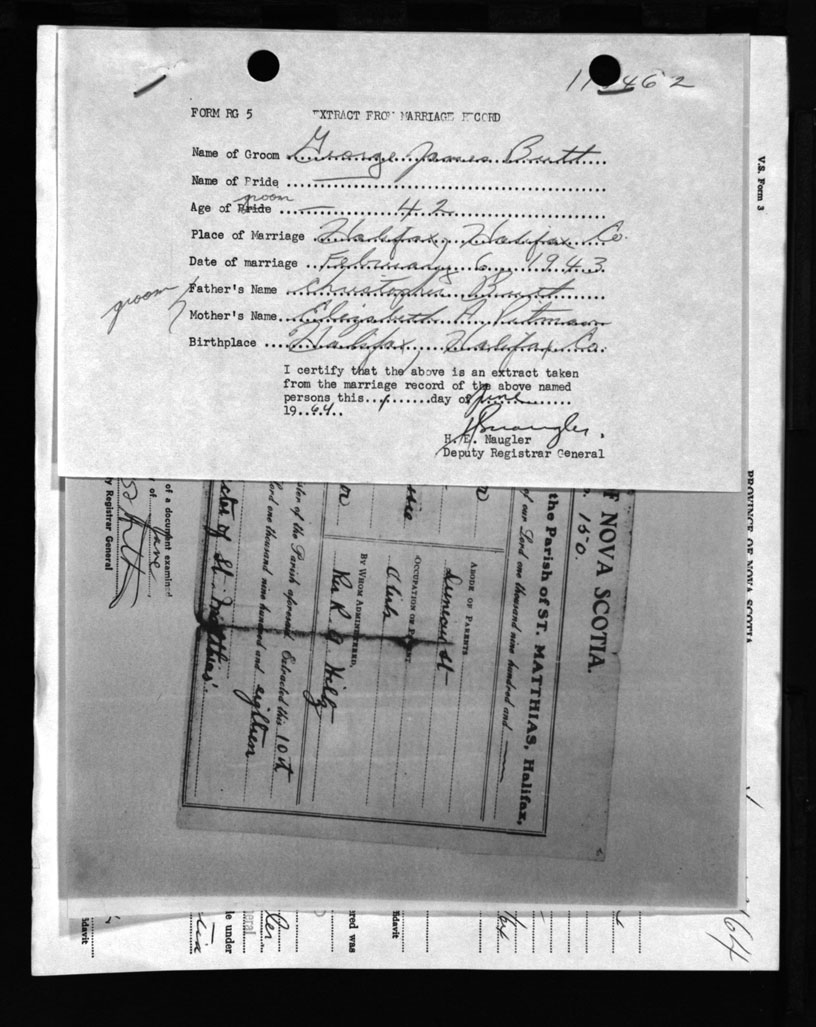 462
FORM RG 5 EXTRACT FROM MARRIAGE RECORD
Name of Groom George James Butt
Name of Bride
groom
Age of Bride 42
Place of Marriage Halifax, Halifax Co.
Date of marriage February 6, 1943
groom Father's Name Christopher Butt
Mother's Name Elizabeth A. Putman
Birthplace Halifax, Halifax Co.
I certify that the above is an extract taken
from the marriage record of the above named
persons this 1 day of June
19 64
H. E. Naugler
Deputy Registrar General
V.S. Form 3
PROVINCE OF NOVA SCOTIA
F NOVA SCOTIA.
150.
the Parish of ST. MATTHIAS, Halifax,
of our Lord one thousand nine hundred and
ABODE OF PARENTS
OCCUPATION OF PARENT
Clerk
BY WHOM ADMINISTERED,
of the Parish aforesaid. Extracted this 10th
ord one thousand nine hundred and eighteen
of St. Matthias'
of a document examin
of June
y Registrar General
64
fidavit
red was
eral
le under
fidavit